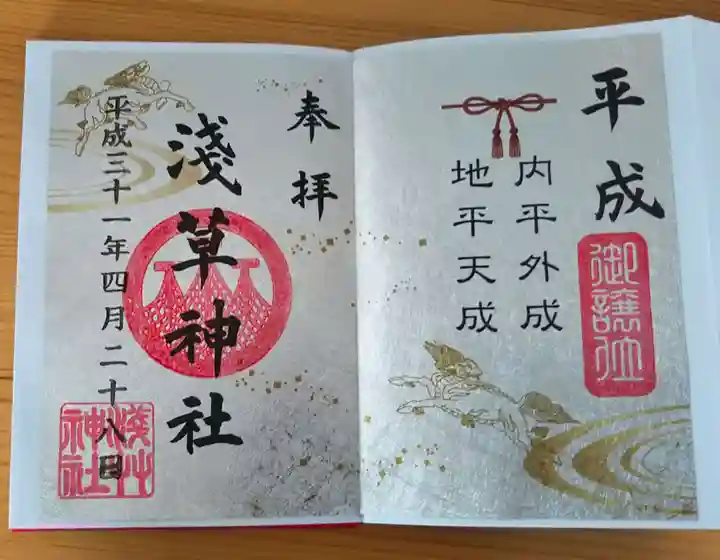 平成
御譲位
内平外成
地平天成
奉拝
淺草神社
平成三十一年四月二十八日
淺草
神社